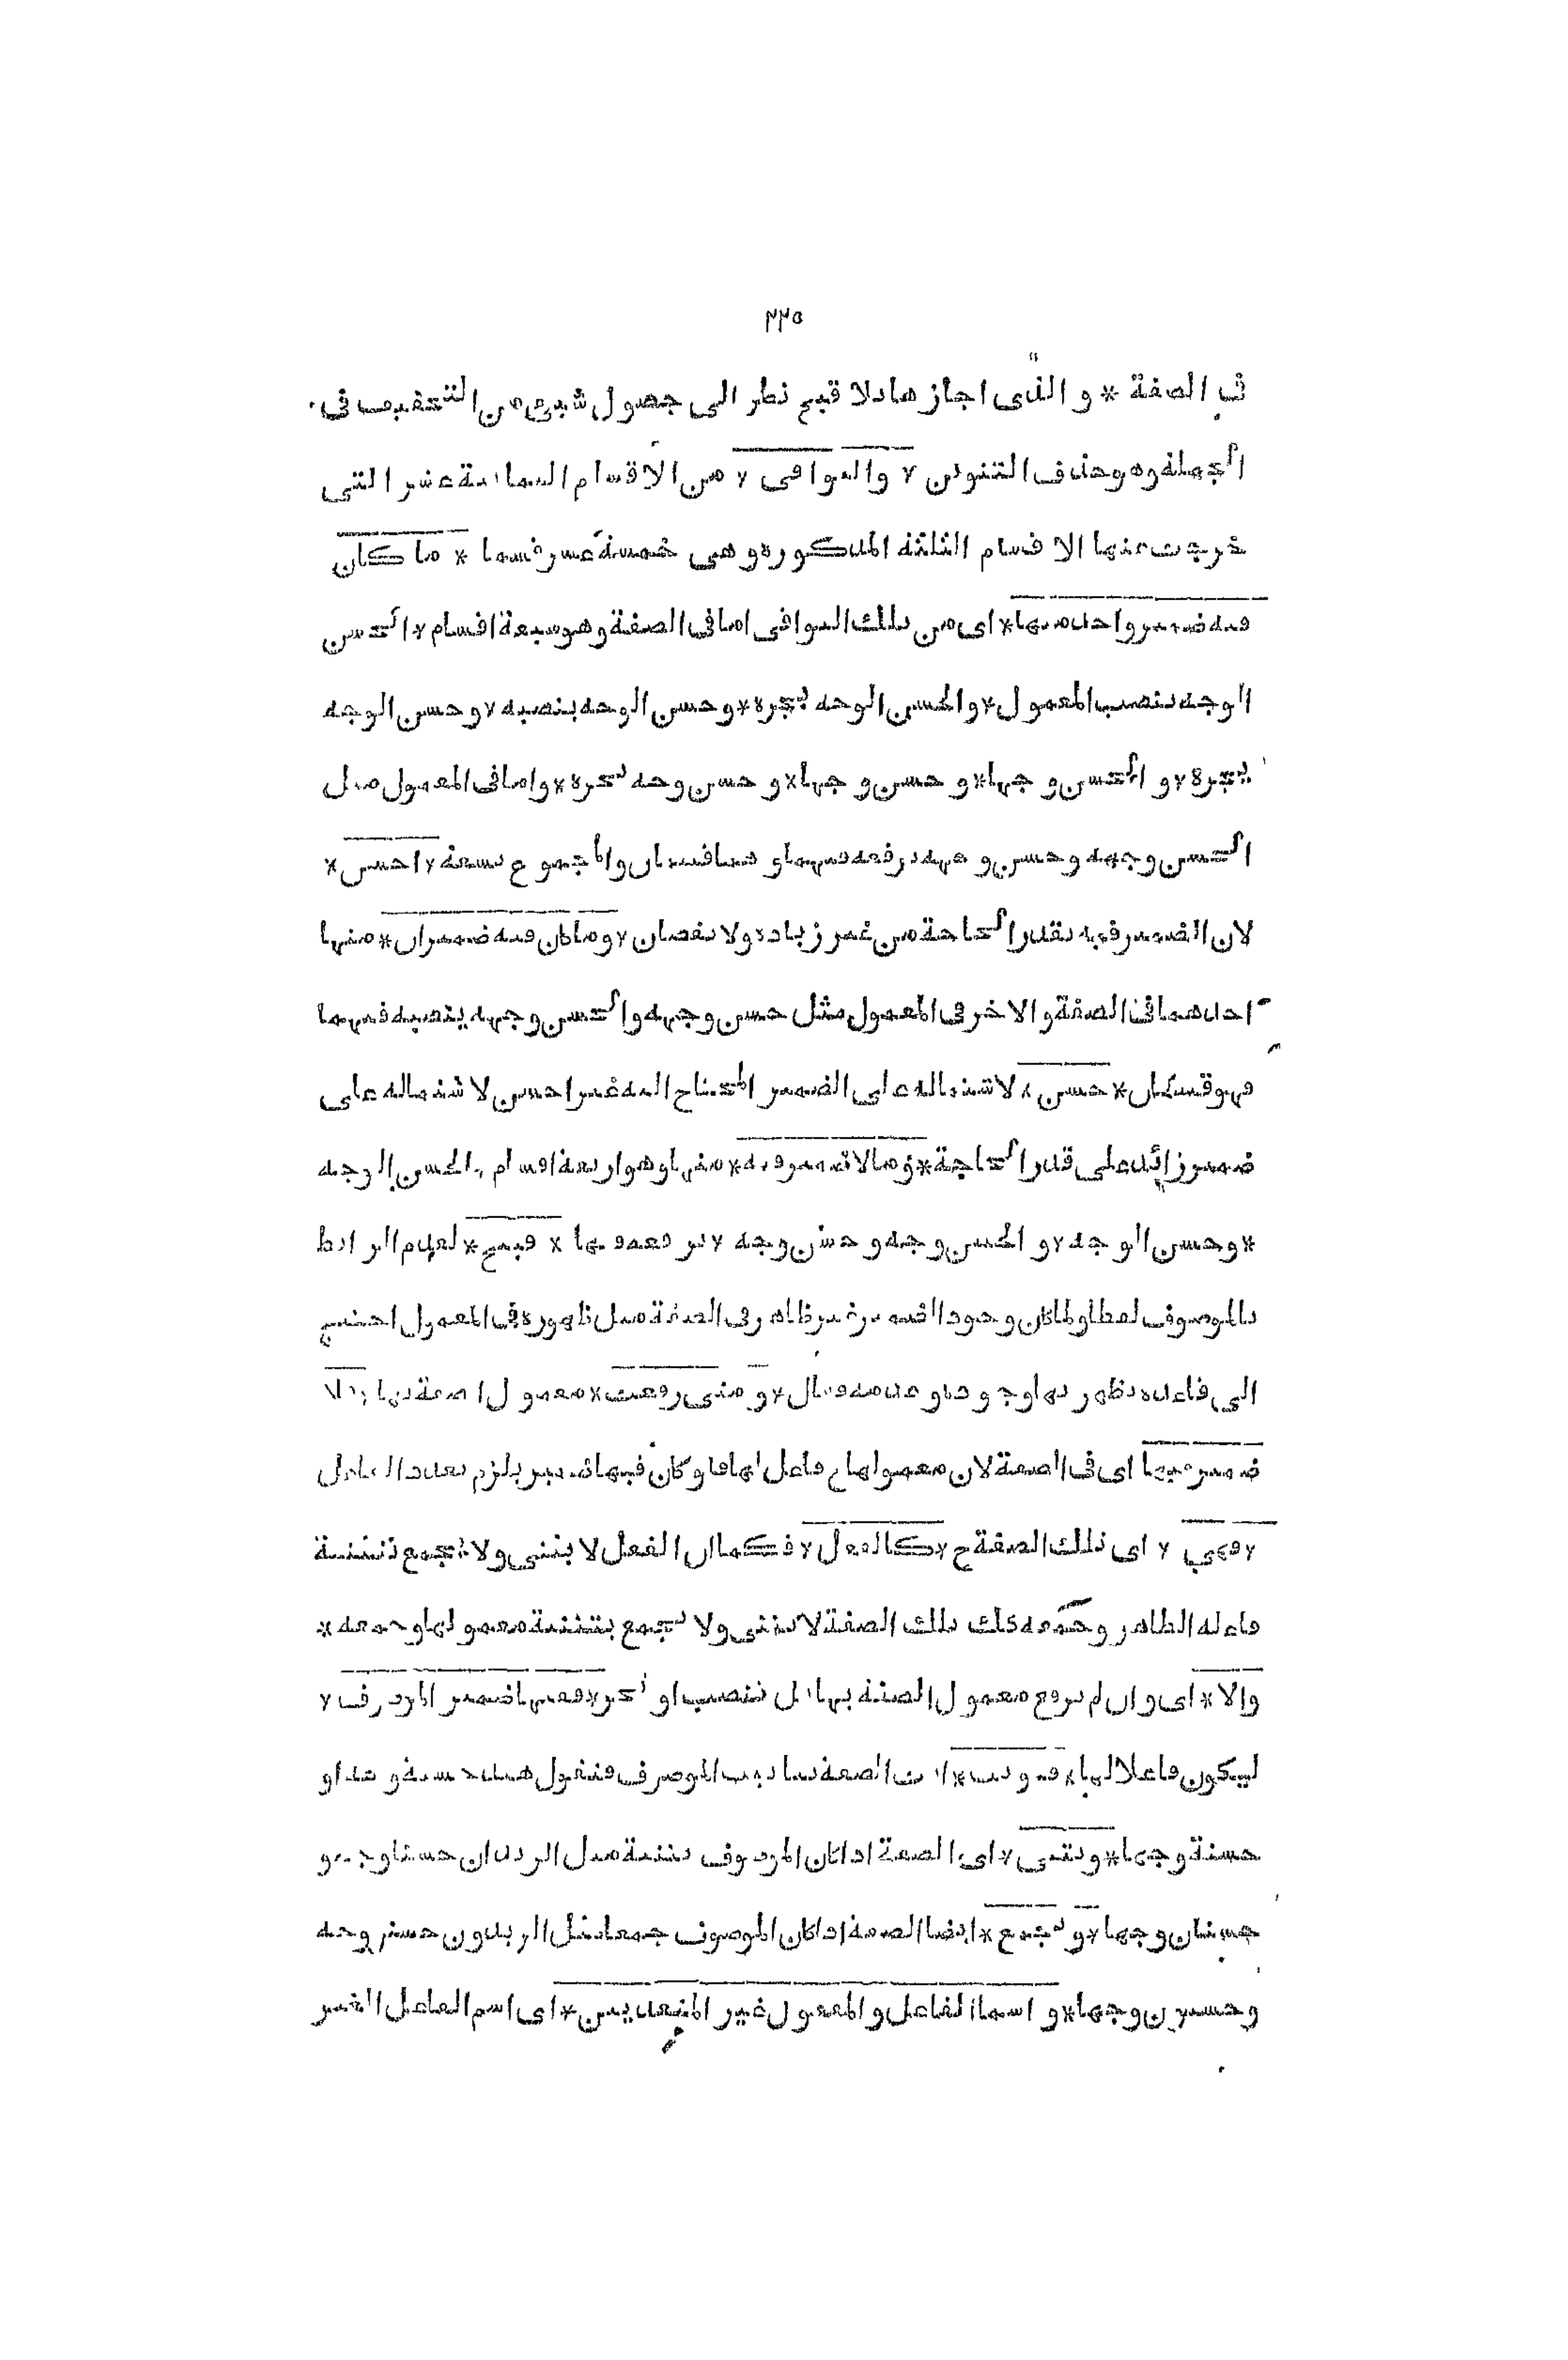 ٢٢٥
في الصفة * والذى اجازها بلا قبح نظر الى حصول شيئ من التخفيف فى
الجملة وهو حذف التنوين * والبواقى * من الاقسام الثمانية عشر التى
خرجت عنها الاقسام الثلثة المذكورة وهى خمسة عشر قسما * ما كان
فيه ضمير واحد منها * اى من تلك البواقى اما فى الصفة وهو سبعة اقسام * الحسن
الوجه بنصب المعمول * والحسن الوجه بجره * وحسن الوجه بنصبه * وحسن الوجه
بجره * والحسن وجها * وحسن وجها * وحسن وجه بجره * واما فى المعمول مثل
الحسن وجهه وحسن وجهه برفعه فيهما وهما قسمان والمجموع تسعة * احسن *
لان الضمير فيه بقدر الحاجة من غير زيادة ولا نقصان * وما كان فيه ضميران * منها
احدهما فى الصفة والاخر فى المعمول مثل حسن وجهه والحسن وجهه بنصبه فيهما
فهو قسمان * حسن * لاشتماله على الضمير المحتاج اليه غير احسن لاشتماله على
ضمير زائد على قدر الحاجة * وما لا ضمير فيه * منها وهو اربعة اقسام * الحسن الوجه
* وحسن الوجه * والحسن وجه وحسن وجه * برفعه فيها * قبيح * لعدم الرابط
بالموصوف لفظا ولما كان وجود الضمير غير ظاهر فى الصفة مثل ظهوره فى المعمول احتيج
الى قاعدة يظهر بها وجوده وعدمه فقال * ومتى رفعت * معمول الصفة بها * فلا
ضمير فيها اى فى الصفة لان معمولها ح فاعل لها فلو كان فيها ضمير يلزم تعدد الفاعل
* فهى * اى تلك الصفة ح * كالفعل * فكما ان الفعل لا يثنى ولا يجمع بتثنية
فاعله الظاهر وجمعه كذلك تلك الصفة لا تثنى ولا تجمع بتثنية معمولها وجمعه *
والا * اى وان لم ترفع معمول الصفة بها بل تنصب او تجر * ففيها ضمير الموصوف *
ليكون فاعلا لها * فيؤنث * انت الصفة بتانيث الموصوف فتقول هند حسنة وجه او
حسنة وجها * وتثنى * اى الصفة اذا كان الموصوف تثنية مثل الزيدان حسنا وجه و
حسنان وجها * وتجمع * ايضا الصفة اذا كان الموصوف جمعا مثل الزيدون حسنو وجه
وحسنون وجها * واسما الفاعل والمفعول غير المتعديين * اى اسم الفاعل الغير